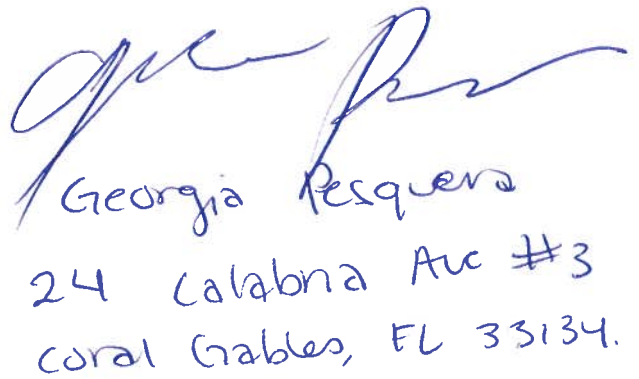 Georgia Pesquera
24 Calabria Ave #3
Coral Gables, FL 33134.